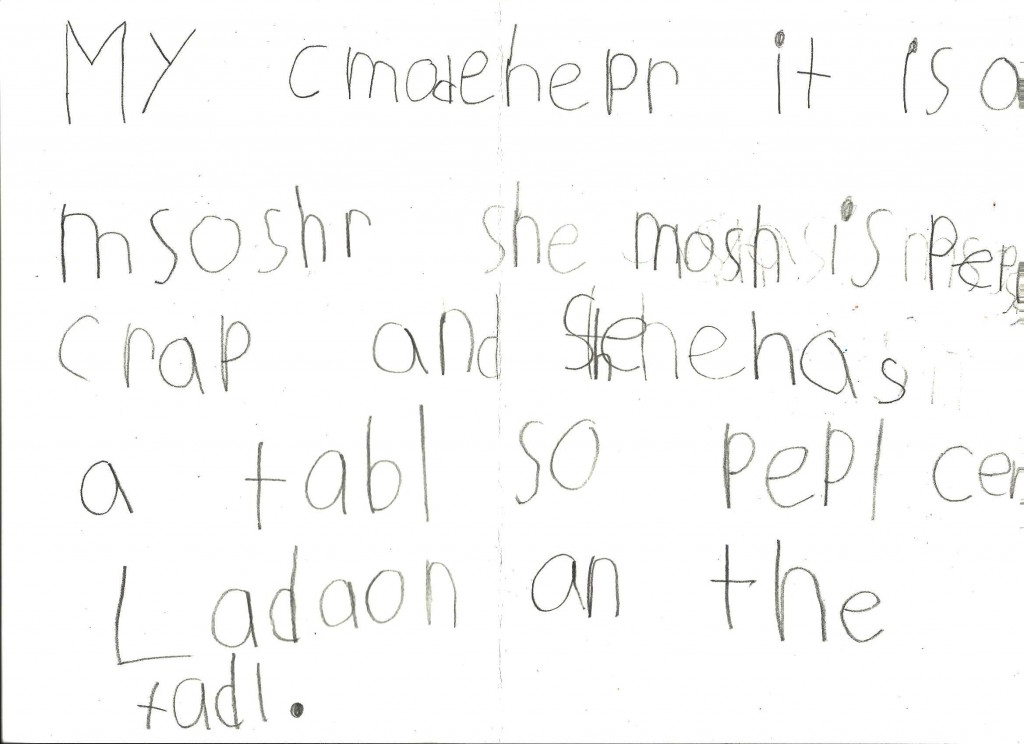 My cmadehepr it is a
msoshr she mosh is Pep
crap and Shehehas
a tabl so pepl cen
Ladaon an the
tadl.